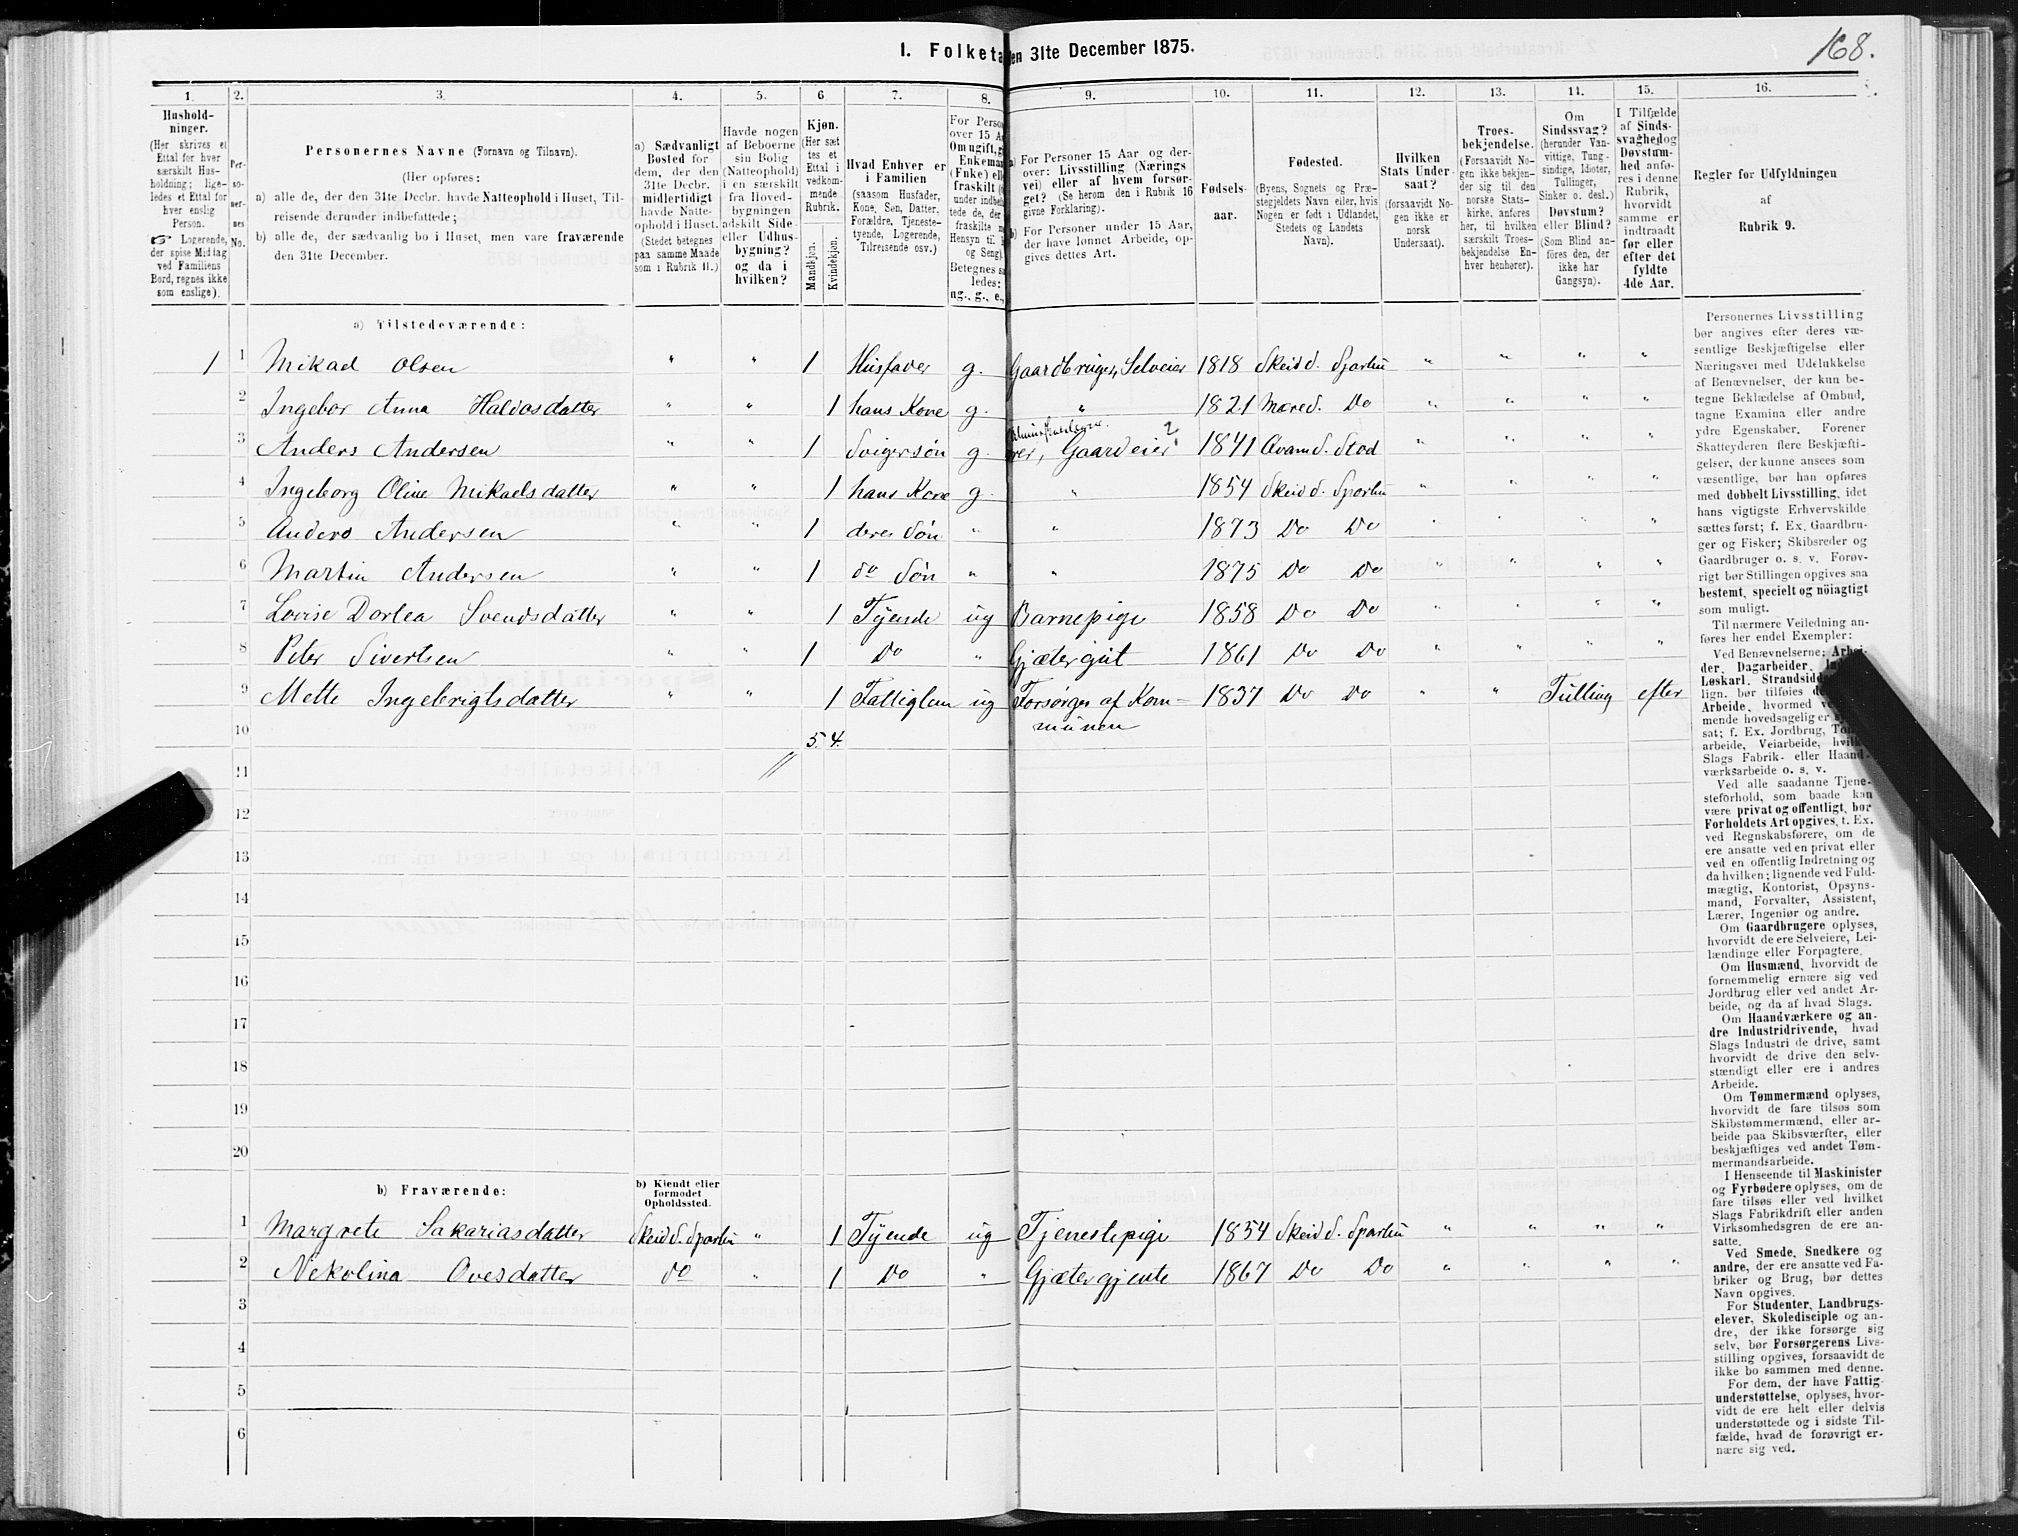 168.
I. Folketa
en 31te December 1875.
1.
2.
3.
4.
5.
6
7.
8.
9.
10.
11.
12.
13.
14.
15.
16.
Hushold-
ninger.
(Her skrives et
Ettal for hver
særskilt Hus-
holdning; lige-
ledes et Ettal for
hver enslig
Person.
☞ Logerende,
der spise Middag
ved Familiens
Bord, regnes ikke
som enslige).
Per-
so-
ner-
nes
No.
Personernes Navne (Fornavn og Tilnavn).
(Her opføres:
a) alle de, der den 31te Decbr. havde Natteophold i Huset, Til-
reisende derunder indbefattede;
b) alle de, der sædvanlig bo i Huset, men vare fraværende
den 31te December.
a) Sædvanligt
Bosted for
dem, der den
31te Decbr.
midlertidigt
havde Natte-
ophold i Huset.
(Stedet betegnes
paa samme Maade
som i Rubrik 11.)
Havde nogen
af Beboerne
sin Bolig
(Natteophold)
i en særskilt
fra Hoved-
bygningen
adskilt Side-
eller Udhus-
bygning?
og da i
hvilken?
Kjøn.
(Her sæt-
tes et
Ettal i
vedkom-
mende
Rubrik.
Mandkjøn.
Kvindekjøn.
Hvad Enhver er
i Familien
(saasom Husfader,
Kone, Søn, Datter,
Forældre, Tjeneste-
tyende, Logerende,
Tilreisende osv.)
For Perso
over 15 A
Om ugift, g
Enkeman
(Fnke) ell
fraskilt (
under indbe
tede de, der
fraskilte
Hensyn til
og Seng)
Betegnes s
ledes:
ug., g., e.,
a) For Personer 15 Aar og der-
over: Livsstilling (Nærings-
vei) eller af hvem forsør-
get? (Se herom den i Rubrik 16
givne Forklaring).
b) For Personer under 15 Aar,
der have lønnet Arbeide, op-
gives dettes Art.
Fødsels-
aar.
Fødested.
(Byens, Sognets og Præ-
stegjeldets Navn eller, hvis
Nogen er født i Udlandet,
Stedets og Landets
Navn).
Hvilken
Stats Under-
saat?
(forsaavidt No-
gen ikke er
norsk
Undersaat).
Troes-
bekjendelse.
(Forsaavidt No-
gen ikke bekjen-
der sig til den
norske Stats-
kirke, anføres
her, til hvilken
særskilt Troes-
bekjendelse En-
hver henhører).
Om
Sindssvag?
(herunder Van-
vittige, Tung-
sindige, Idioter,
Tullinger,
Sinker o. desl.)
Døvstum?
eller Blind?
(Som Blind an-
føres den, der
ikke har
Gangsyn).
I Tilfælde
af Sinds-
svaghed og
Døvstum-
hed anfø-
res i denne
Rubrik,
hvorvidt
samme er
indtraadt
før eller
efter det
fyldte
4de Aar.
Regler for Udfyldningen
af
Rubrik 9.
a) Tilstedeværende:
1 1 Mikael Olsen " " 1 Husfader g. Gaardbruger, Selveier 1818 Skeid S. Sparbu " " " "
2 Ingebor Anna Haldosdatter " " 1 hans Kone g. " 1821 Mære S. Do " " " "
3 Anders Andersen " " 1 Svigersøn g. Gaardeier 1841 Qvam S. Stod " " " "
4 Ingeborg Oline Mikaelsdatter " " 1 hans Kone g. " 1854 Skeid S. Sparbu " " " "
5 Anders Andersen " " 1 deres Søn " " 1873 Do Do " " " "
6 Martin Andersen " " 1 do Søn " " 1875 Do Do " " " "
7 Lovise Dortea Svendsdatter " " 1 Tyende ug Barnepige 1858 Do Do " " " "
8 Peter Sivertsen " " 1 Do " Gjætergut 1861 Do Do " " " "
9 Mette Ingebrigtsdatter " " 1 Fattiglem ug Forsørges af Kom- 1837 Do Do " " Tulling efter
munen
10 5. 4.
11
12
13
14
15
16
17
18
19
20
b) Fraværende:
b) Kiendt eller
formodet
Opholdssted.
1 Margrete Sakariasdatter Skeid S. Sparbu " 1 Tyende ug Tjenestepige 1854 Skeid S. Sparbu " " " "
2 Nekolina Ovesdatter do " 1 Do " Gjætergjente 1867 Do Do " " " "
3
4
5
6
Personernes Livsstilling
bør angives efter deres væ-
sentlige Beskjæftigelse eller
Næringsvei med Udelukkelse
af Benævnelser, der kun be-
tegne Beklædelse af Ombud,
tagne Examina eller andre
ydre Egenskaber. Forener
Skatteyderen flere Beskjæfti-
gelser, der kunne ansees som
væsentlige, bør han opføres
med dobbelt Livsstilling, idet
hans vigtigste Erhvervskilde
sættes først; f. Ex. Gaardbru-
ger og Fisker; Skibsreder og
Gaardbruger o. s. v. Forøv-
rigt bør Stillingen opgives saa
bestemt, specielt og nöiagtigt
som muligt.
Til nærmere Veiledning an-
føres her endel Exempler:
Ved Benævnelserne: Arbei-
der, Dagarbeider,
Løskarl, Strandsidd
lign. bør tilføies
Arbeide, hvormed
mende hovedsagelig er
sat; f. Ex. Jordbrug,
arbeide, Veiarbeide,
Slags Fabrik- eller Haand-
værksarbeide o. s. v.
Ved alle saadanne Tjene-
steforhold, som baade kan
være privat og offentligt, bør
Forholdets Art opgives, t. Ex.
ved Regnskabsførere, om de
ere ansatte ved en privat eller
ved en offentlig Indretning og
da hvilken; lignende ved Fuld-
mægtig, Kontorist, Opsyns-
mand, Forvalter, Assistent,
Lærer, Ingeniør og andre.
Om Gaardbrugere oplyses,
hvorvidt de ere Selveiere, Lei-
lændinge eller Forpagtere.
Om Husmænd, hvorvidt de
fornemmelig ernære sig ved
Jordbrug eller ved andet Ar-
beide, og da af hvad Slags.
Om Haandværkere og an-
dre Industridrivende, hvad
Slags Industri de drive, samt
hvorvidt de drive den selv-
stændigt eller ere i andres
Arbeide.
Om Tømmermænd oplyses,
hvorvidt de fare tilsøs som
Skibstømmermænd, eller ar-
beide paa Skibsværfter, eller
beskjæftiges ved andet Tøm-
mermandsarbeide.
I Henseende til Maskinister
og Fyrbødere oplyses, om de
fare tilsøs eller ved hvilket
Slags Fabrikdrift eller anden
Virksomhedsgren de ere an-
satte.
Ved Smede, Snedkere og
andre, der ere ansatte ved Fa-
briker og Brug, bør dettes
Navn opgives.
For Studenter, Landbrugs-
elever, Skoledisciple og an-
dre, der ikke forsørge sig
selv, bør Forsørgerens Livs-
stilling opgives, forsaavidt de
ikke bo sammen med denne.
For dem, der have Fattig-
understøttelse, oplyses, hvor-
vidt de ere helt eller delvis
understøttede og i sidste Til-
fælde, hvad de forøvrigt er-
nære sig ved.